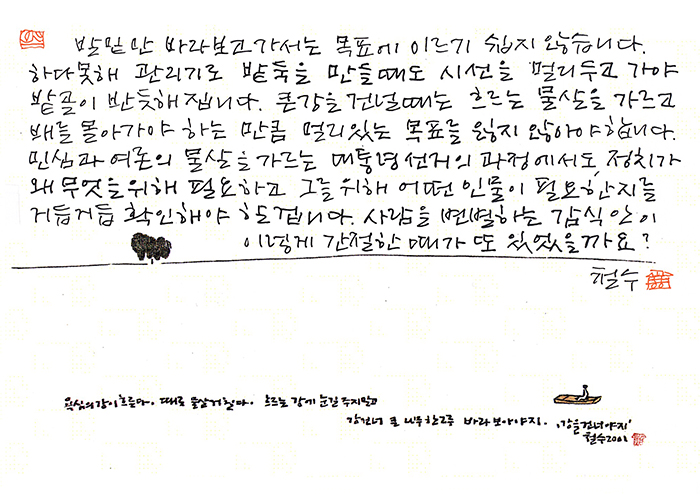 발밑만 바라보고가서는 목표에 이르기 쉽지 않습니다.
하다못해 관리기로 밭둑을 만들때도 시선을 멀리두고 가야
밭골이 반듯해집니다. 큰강을 건널때는 흐르는 물살을 가르고
배를 몰아가야 하는 만큼 멀리있는 목표를 잃지 않아야합니다.
민심과 여론의 물살을 가르는 대통령선거의 과정에서도 정치가
왜 무엇을위해 필요하고 그를위해 어떤 인물이 필요한지를
거듭거듭 확인해야 할겁니다. 사람을 변별하는 감식안이
이렇게 간절한 때가 또 있었을까요?
철수
욕심의강이흐른다. 때로 물살거칠다. 흐르는 강에 눈길 주지말고
강건너 큰 나무한그루 바라보아야지. '강을건너야지'
철수2001